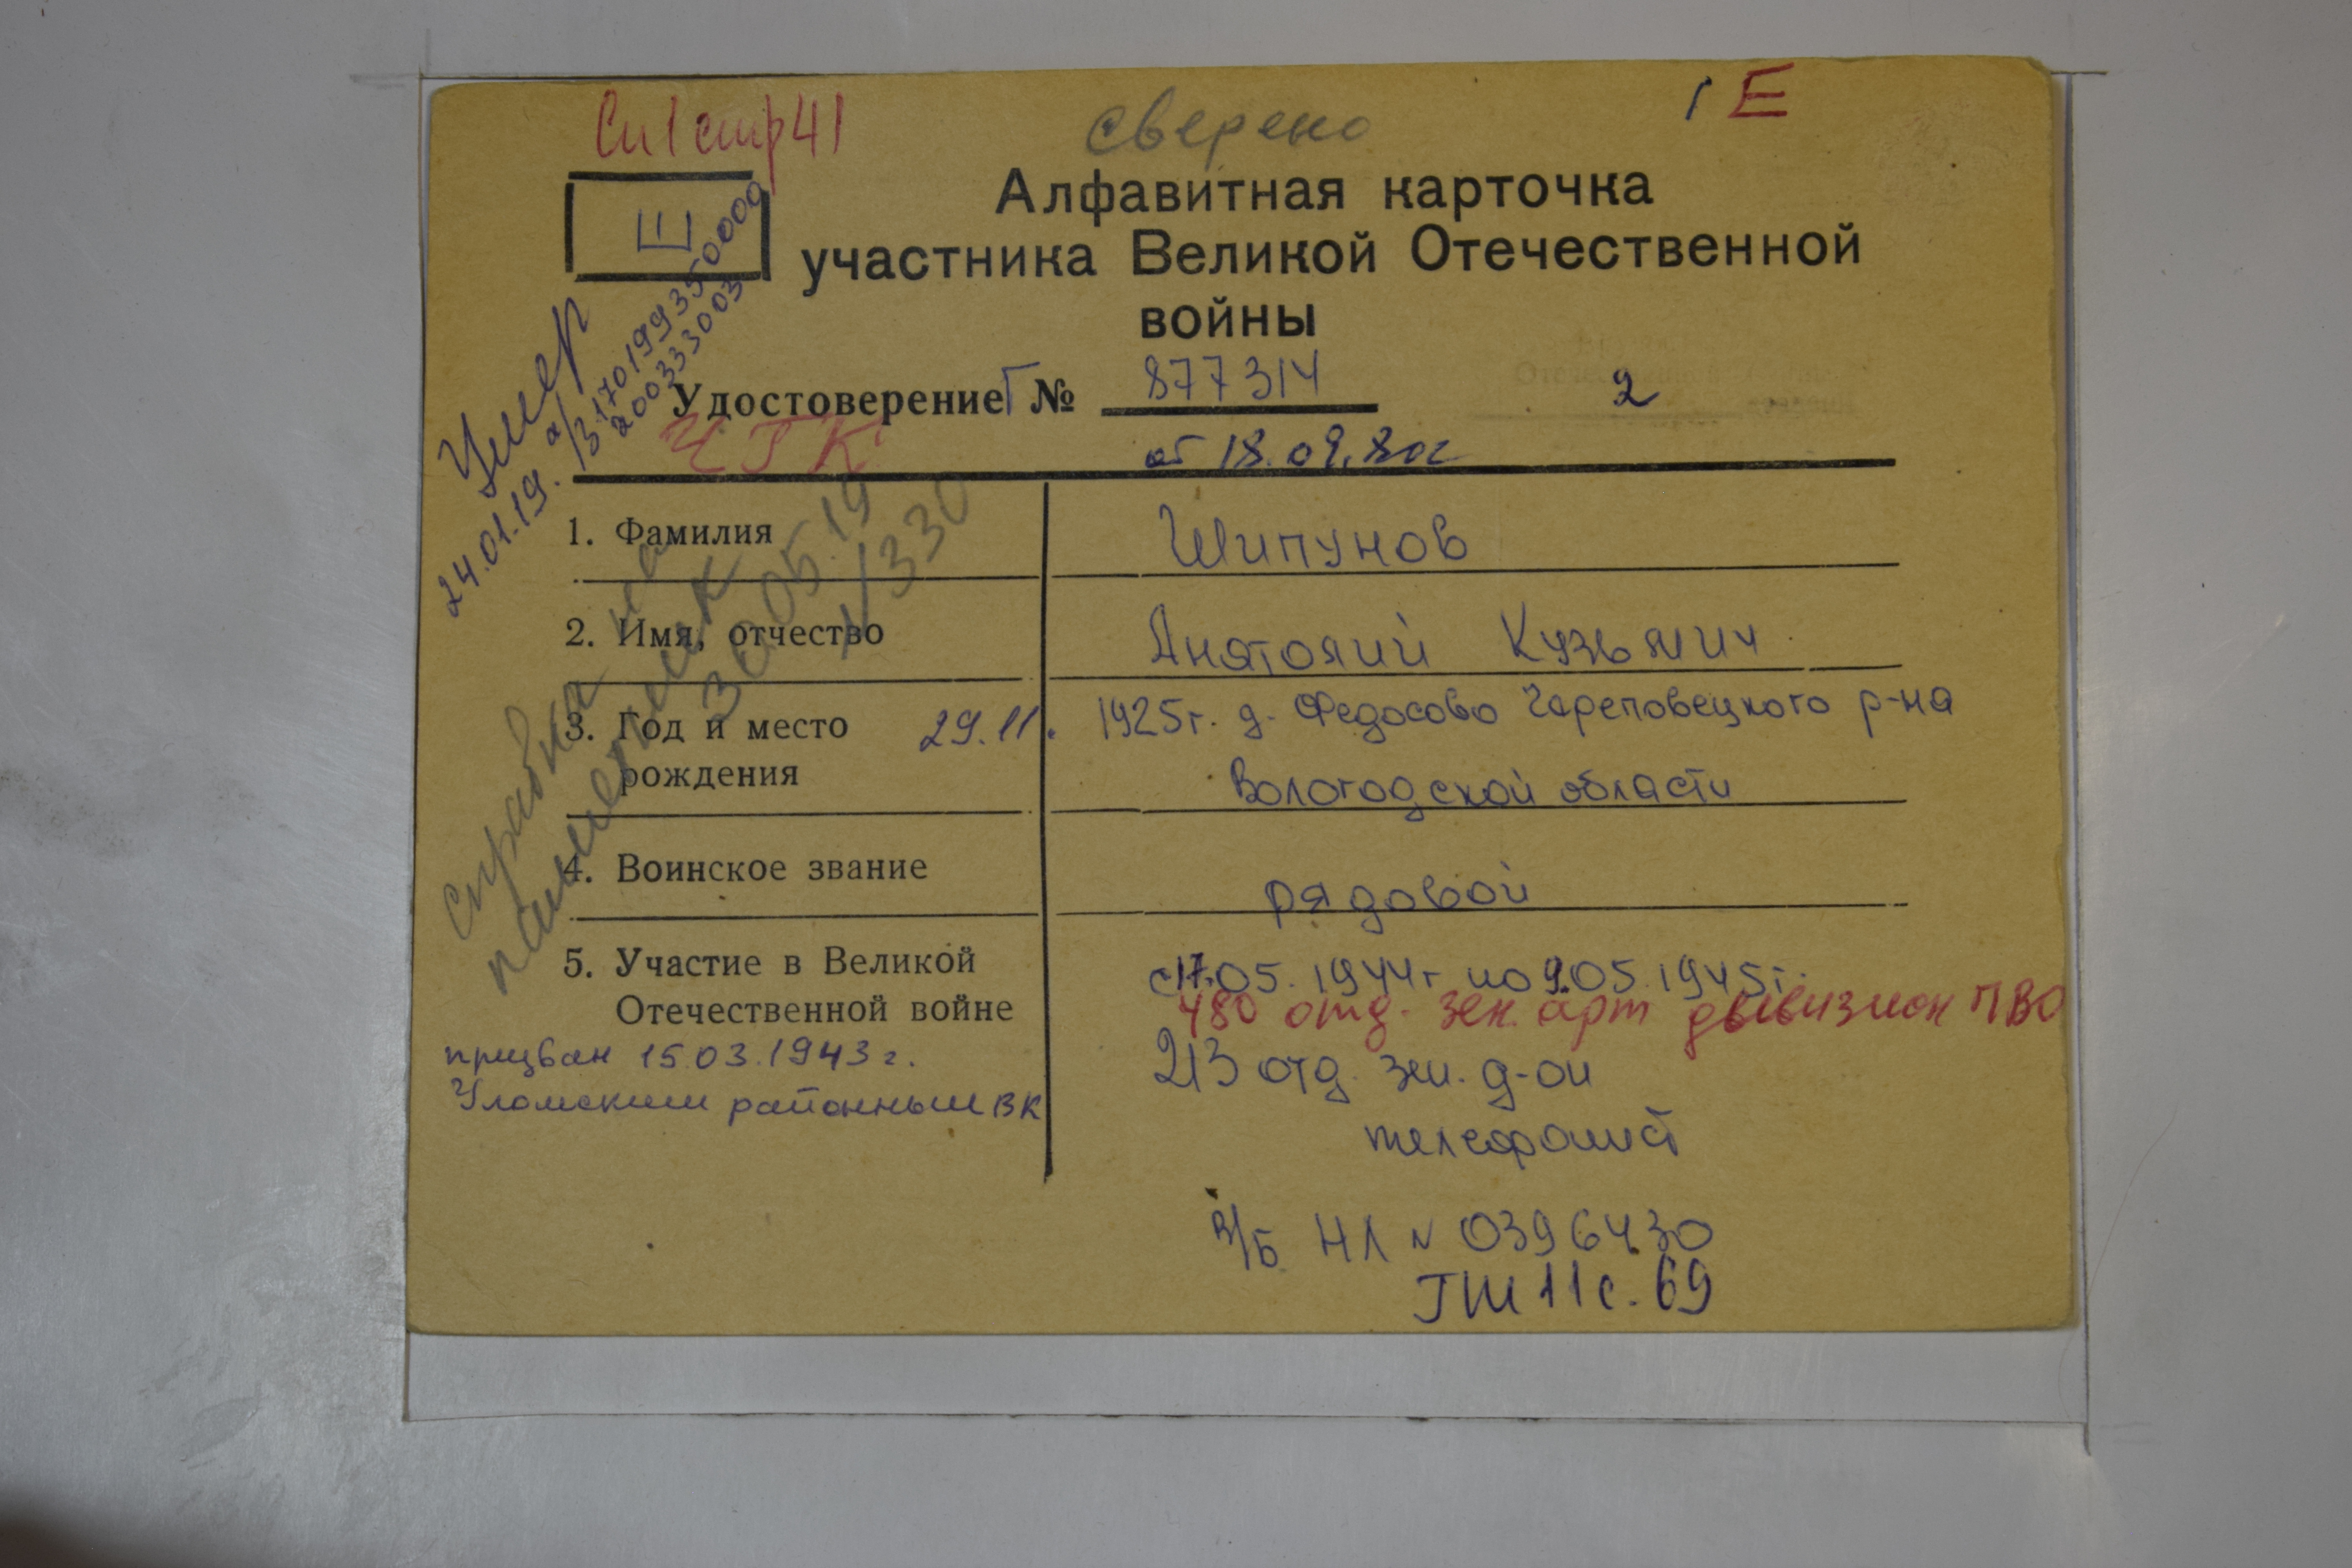 Сп 1 стр 41
сверено
1 Е
Е
Алфавитная карточка
участника Великой Отечественной
войны
Удостоверение Г № 877314
2
ЧГК
от 18.09.80г
Умер
24.01.19. а/з 170199350000
200333003
Справка на
памятник
30 05 19
1/330
1. Фамилия
Шипунов
2. Имя, отчество
Анатолий Кузьмич
3. Год и место
рождения
29.11. 1925г. д. Федосово Череповецкого р-на
Вологодской области
4. Воинское звание
рядовой
5. Участие в Великой
Отечественной войне
с 17.05.1944г по 9.05.1945г.
480 отд. зен. арт дивизион ПВО
призван 15.03.1943 г.
Уломским районным ВК
213 отд. зен. д-он
телефонист
в/б НЛ № 0396430
ГШ 11 с. 69